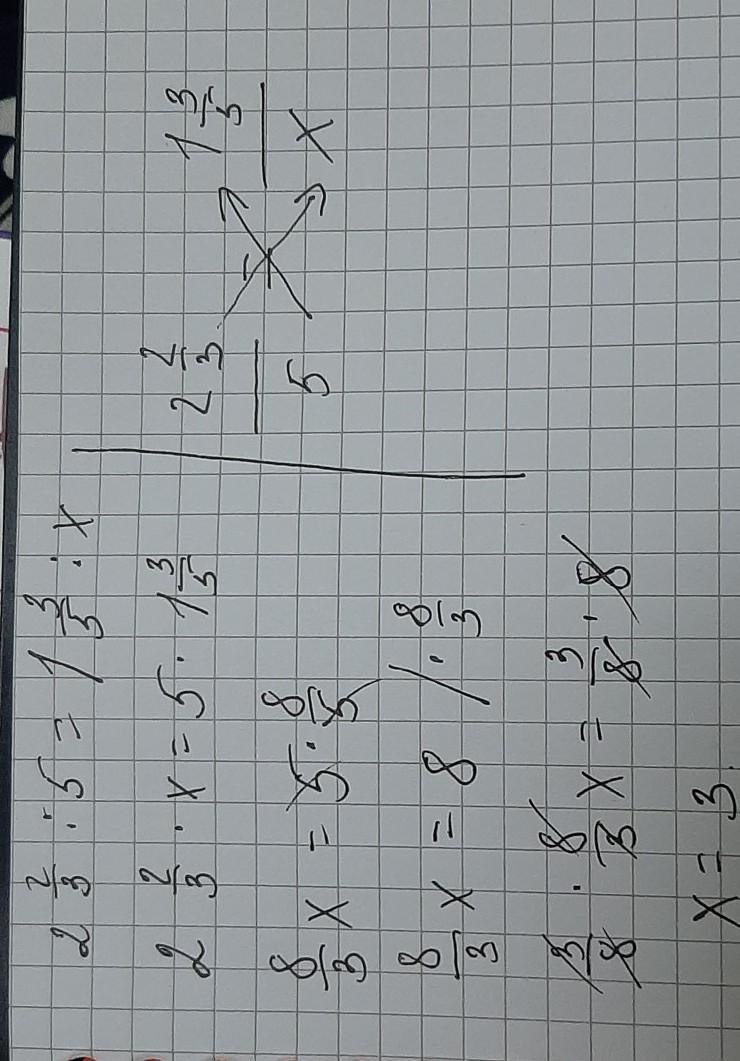 2 2/3 : 5 = 1 3/5 : x
2 2/3 · x = 5 · 1 3/5
8/3 x = 5 · 8/5
8/3 x = 8 / · 8/3
3/8 · 8/3 x = 3/8 · 8
x = 3
2 2/3 / 5 = 1 3/5 / x